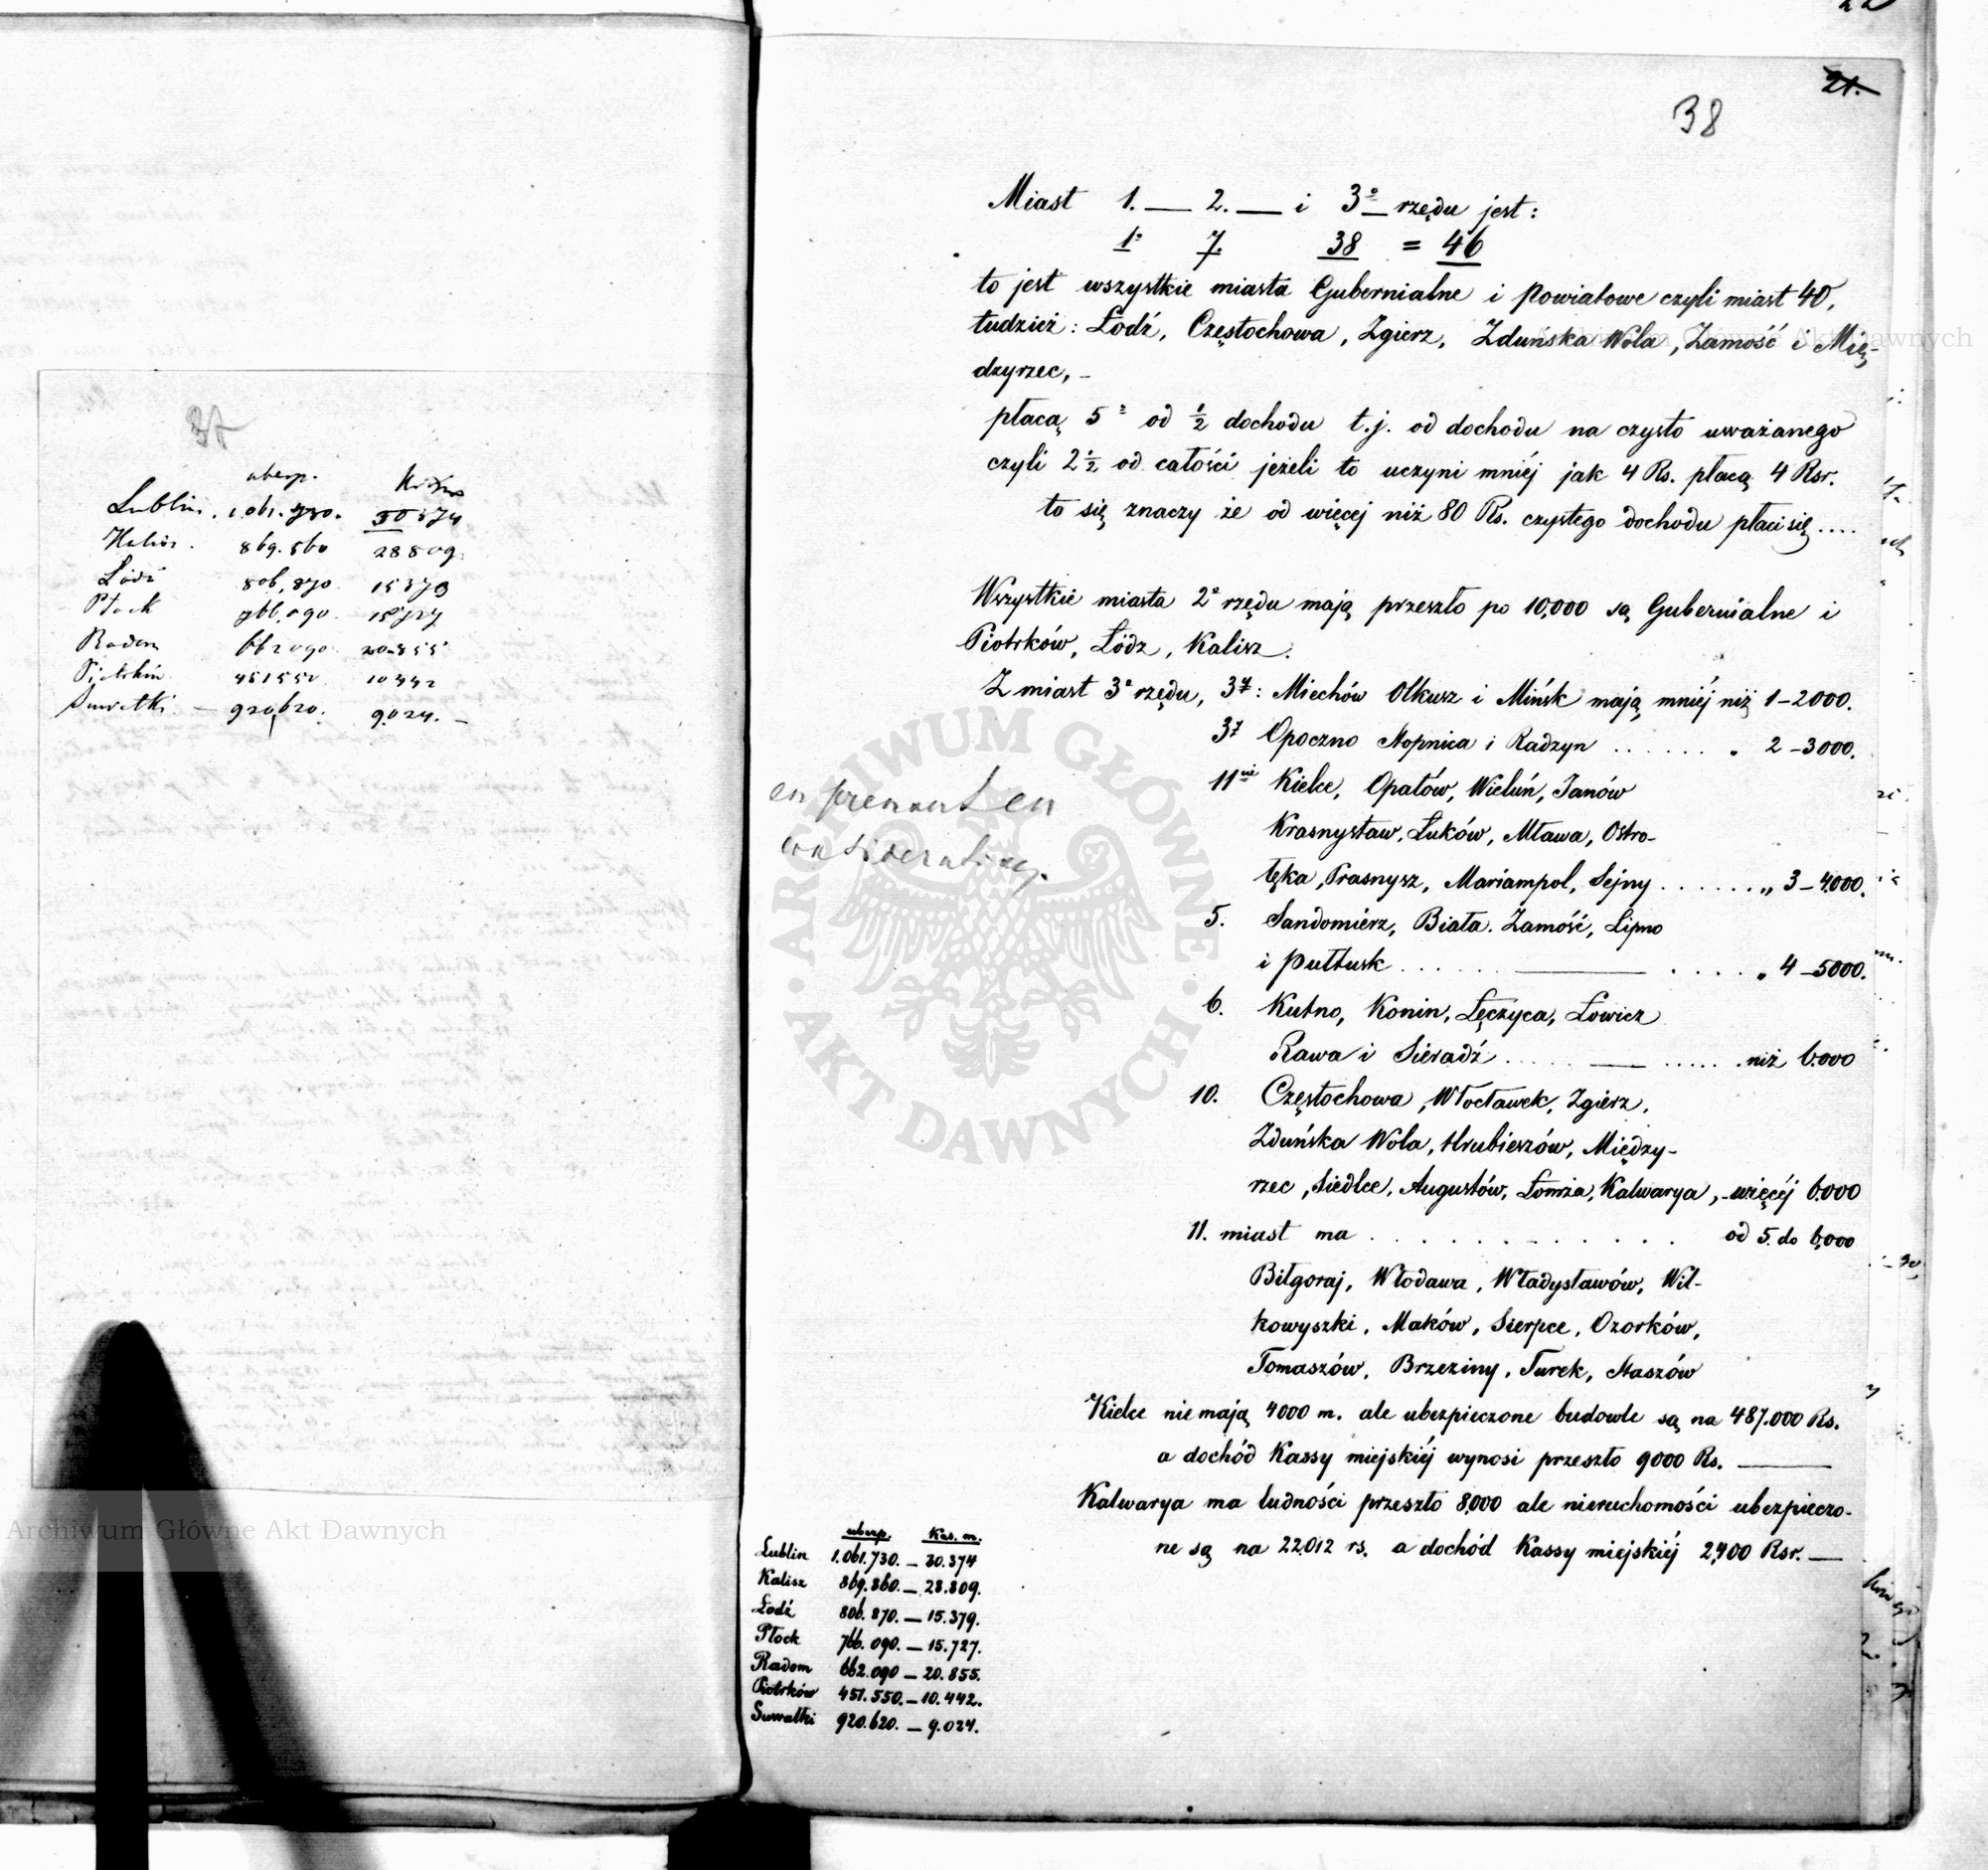 37
ubezp.
Lublin. 1.061.730. 30374
Kalisz. 869.860 28809.
Łódź 806,870. 15379
Płock 766.090. 15727
Radom 662090. 20.855
Piotrków 451550 10442
Suwałki. — 920,620. 9.024. —
21.
38
Miast 1. — 2. — i 3º rzędu jest:
1. 7. 38 = 46
to jest wszystkie miasta Gubernialne i Powiatowe czyli miast 40,
tudzież: Łodź, Częstochowa, Zgierz, Zduńska Wola, Zamość i Mię-
dzyrzec, –
płacą 5 od ½ dochodu t.j. od dochodu na czysto uważanego
czyli 2½ od całości jeżeli to uczyni mniéj jak 4 Rs. płacą 4 Rsr.
to się znaczy że od więcej niż 80 Rs. czystego dochodu płaci się ....
Wszystkie miasta 2º rzędu mają przeszło po 10,000 są Gubernialne i
Piotrków, Łódz, Kalisz.
Z miast 3º rzędu, 3y: Miechów Olkusz i Mińsk mają mniéj niż 1–2000.
3y Opoczno Stopnica i Radzyn . . . . . . „ 2–3000.
11cie Kielce, Opatów, Wieluń, Janów
Krasnystaw, Łuków, Mława, Ostro-
łęka, Prasnysz, Mariampol, Sejny . . . . . . „ 3–4000.
5. Sandomierz, Biała. Zamość, Lipno
i Pułtusk . . . . . — . . . . . „ 4–5000.
6. Kutno, Konin, Łęczyca, Łowicz
Rawa i Sieradź . . . . . — . . . . . niż 6000
10. Częstochowa, Włocławek, Zgierz,
Zduńska Wola, Hrubieszów, Między-
rzec, Siedlce, Augustów, Łomża, Kalwarya, – więcéj 6.000
11. miast ma . . . . . . . . . . . . od 5. do 6,000
Biłgoraj, Włodawa, Władysławów, Wił-
kowyszki, Maków, Sierpce, Ozorków,
Tomaszów, Brzeziny, Turek, Staszów
Kielce nie mają 4000 m. ale ubezpieczone budowle są na 487.000 Rs.
a dochód Kassy miejskiéj wynosi przeszło 9000 Rs. —
Kalwarya ma ludności przeszło 8,000 ale nieruchomości ubezpieczo-
ne są na 22.012 rs. a dochód Kassy miejskiéj 2,400 Rsr. —
en prenant en
consideration.
ubezp. Kas. m.
Lublin 1.061.730. — 30.374
Kalisz 869.860. — 28.809.
Łodź 806.870. — 15.379.
Płock 766.090. — 15.727.
Radom 662.090 — 20.855.
Piotrków 451.550. — 10.442.
Suwałki 920.620. — 9.024.
ARCHIWUM GŁÓWNE
AKT DAWNYCH
Archiwum Główne Akt Dawnych
Archiwum Główne Akt Dawnych